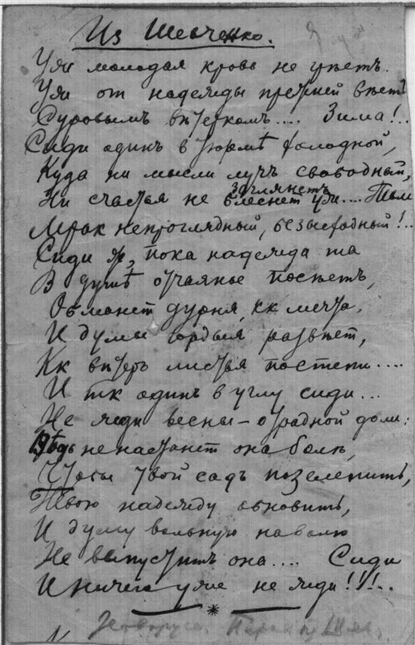 Из Шевченко.
Уж молодая кровь не греетъ.
Уж от надежды прежней веетъ
Суровымъ вѣтеркомъ.... Зима!..
Сиди одинъ в тюрмѣ холодной,
Куда ни мысли лучъ свободный,
заглянетъ
Ни счастья не блеснет .... Тьма
Мрак непроглядный, безысходный!..
Сиди ж, пока надежда та
В душѣ отчаянье посѣетъ,
Обманет дурня, кк мечта,
И думы гордыя развѣет,
Кк вѣтръ листья по степи....
И тк один в углу сиди...
Не жди весны – отрадной доли:
Вѣдь не настанет она болѣ,
Чтобы твой садъ позеленить,
Твою надежду обновить,
И думу вольную на волю
Не выпуститъ она.... Сиди
И ничего уже не жди!!!..